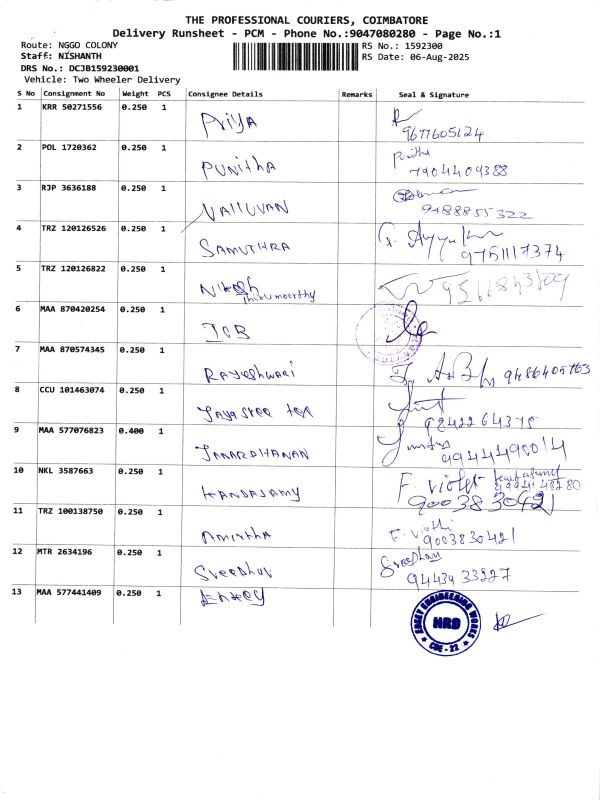 THE PROFESSIONAL COURIERS, COIMBATORE
Delivery Runsheet - PCM - Phone No.:9047080280 - Page No.:1
Route: NGGO COLONY
RS No.: 1592300
Staff: NISHANTH
RS Date: 06-Aug-2025
DRS No.: DCJB159230001
Vehicle: Two Wheeler Delivery
S No Consignment No Weight PCS Consignee Details Remarks Seal & Signature
1 KRR 50271556 0.250 1 Priya
9677605124
2 POL 1720362 0.250 1 PUNITHA Punitha
7904409388
3 RJP 3636188 0.250 1 VALLUVAN
9488855322
4 TRZ 120126526 0.250 1 SAMUTHRA
9751117374
5 TRZ 120126822 0.250 1 Nikesh
thirumoorthy
6 MAA 870420254 0.250 1 IOB
7 MAA 870574345 0.250 1 Rajeshwari 9486405763
8 CCU 101463074 0.250 1 Jayasree tex
9842264375
9 MAA 577076823 0.400 1 JANARDHANAN
9944490014
10 NKL 3587663 0.250 1 KANDASAMY F. Violet
9003830421
11 TRZ 100138750 0.250 1 Amirtha
9003830421
12 MTR 2634196 0.250 1 Sreedhar Sreedhar
9443433227
13 MAA 577441409 0.250 1
ENGINEERING WORKS
HRD
CBE - 22